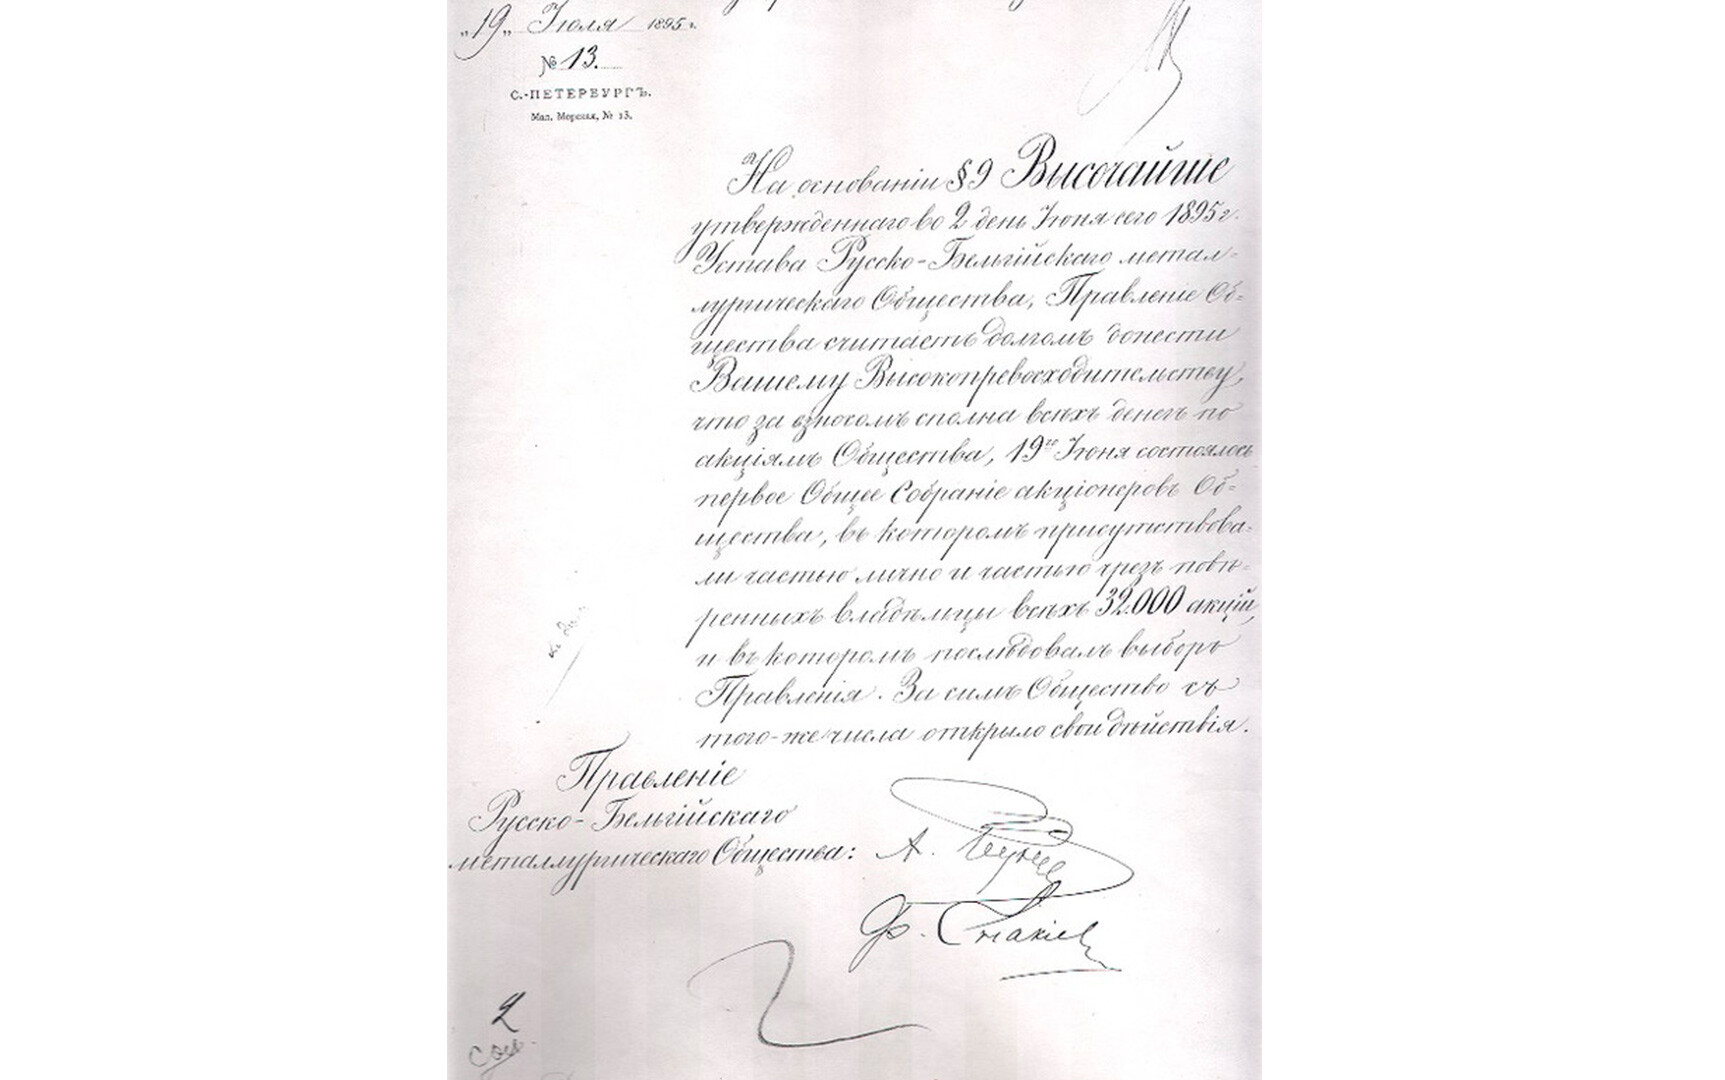 „19„ Июля 1895 г.
№ 13.
С.-ПЕТЕРБУРГЪ.
Мал. Морская, № 13.
На основаніи § 9 Высочайше
утвержденнаго во 2 день Іюня сего 1895 г.
Устава Русско-Бельгійскаго метал-
лургическаго Общества, Правленіе Об-
щества считаетъ долгомъ донести
Вашему Высокопревосходительству,
что за взносомъ сполна всѣхъ денегъ по
акціямъ Общества, 19го Іюня состоялось
первое Общее Собраніе акціонеровъ Об-
щества, въ которомъ присутствова-
ли частью лично и частью чрезъ повѣ-
ренныхъ владѣльцы всѣхъ 32.000 акцій,
и въ которомъ послѣдовалъ выборъ
Правленія. За симъ Общество съ
того-же числа открыло свои дѣйствія.
Правленіе
Русско-Бельгійскаго
металлургическаго Общества:
А.
Ф.
2